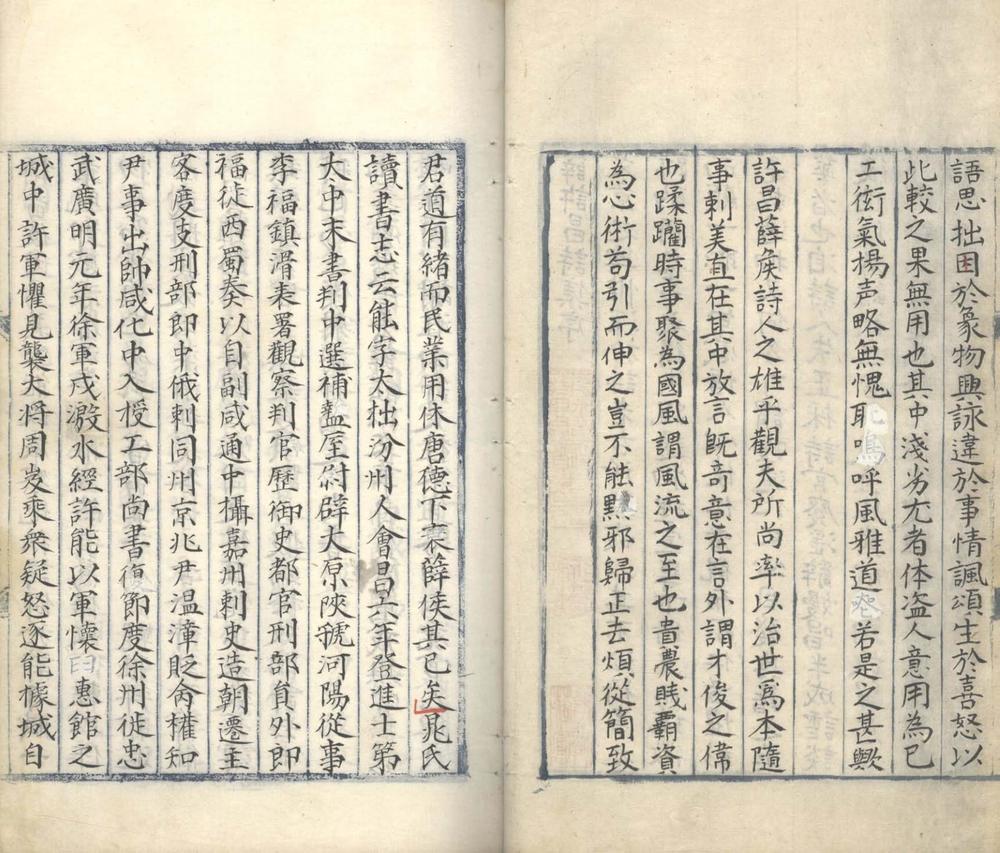 語思拙困於象物興詠違於事情諷頌生於喜怒以
此較之果無用也其中淺劣尤者体盗人意用為已
工衒氣揚声略無愧恥嗚呼風雅道若是之甚歟
許昌薛侯詩人之雄乎觀夫所尚率以治世爲本隨
事刺美直在其中放言既竒意在言外謂才俊之偉
也蹂躪時事聚為國風謂風流之至也貴農賎霸資
為心術苟引而伸之豈不能黜邪歸正去煩從簡致
君道有緒而民業用休唐德下衰薛侯其已矣晁氏
讀書志云能字太拙汾州人會昌六年登進士第
大中末書判中選補盩厔尉辟大原陜虢河陽從事
李福鎮滑表署觀察判官歷御史都官刑部員外郎
福徙西蜀奏以自副咸通中攝嘉州刺史造朝遷主
客度支刑部郎中俄刺同州京兆尹温漳貶命權知
尹事出帥感化中入授工部尚書復節度徐州徙忠
武廣明元年徐軍戍溵水經許能以軍懷舊惠館之
城中許軍懼見襲大将周岌乘衆疑怒逐能據城自